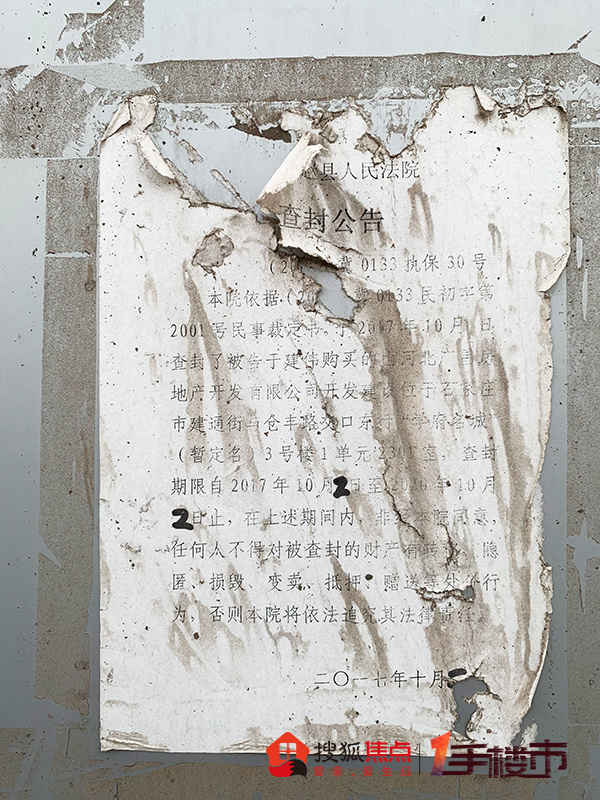 县人民法院
查封公告
(20 冀0133执保30号
本院依据(20 冀0133民初字第
2001号民事裁定书,于2017年10月 日
查封了被告于建伟购买的由河北广 房
地产开发有限公司开发建设位于石家庄
市建通街与仓丰路交口东行“学府名城”
(暂定名)3号楼1单元2301室,查封
期限自2017年10月2日至2020年10月
2日止,在上述期间内,非经本院同意,
任何人不得对被查封的财产有转移、隐
匿、损毁、变卖、抵押、赠送等处分行
为,否则本院将依法追究其法律责任。
二〇一七年十月
搜狐焦点
1手楼市